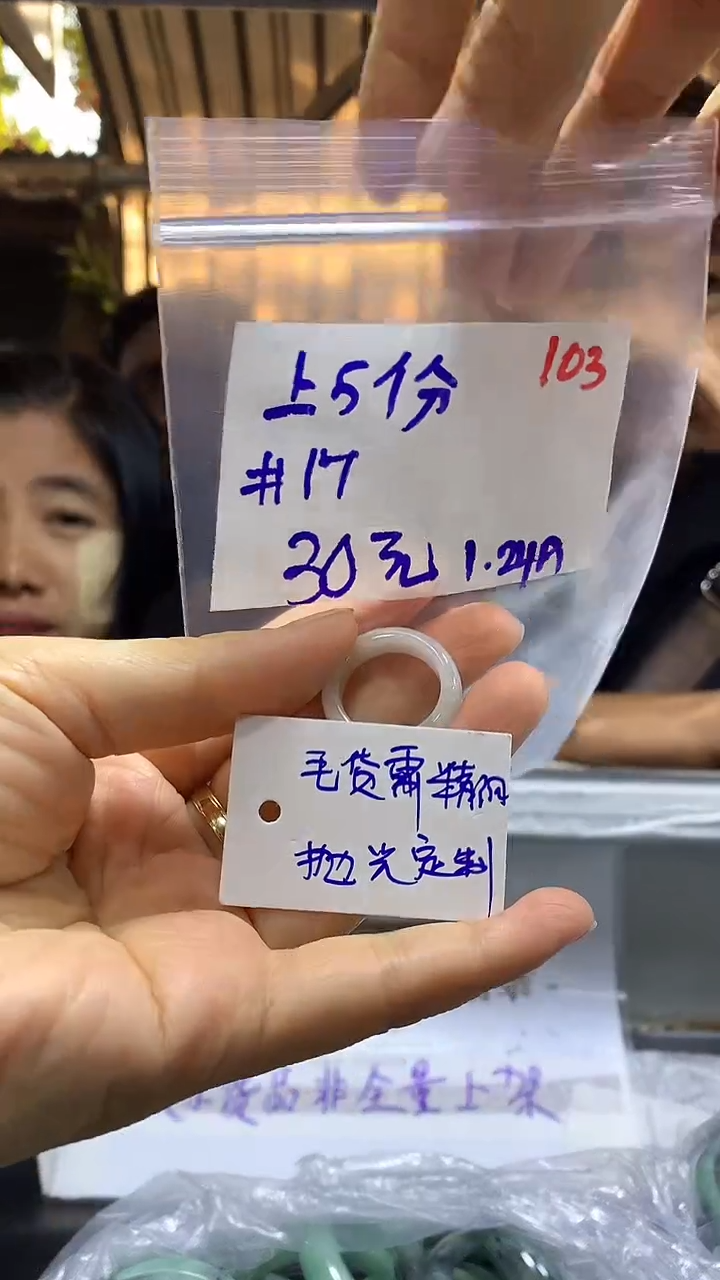 上5份
103
#17
30元 1.24A
毛货需精
抛光定制
货品非全量上架